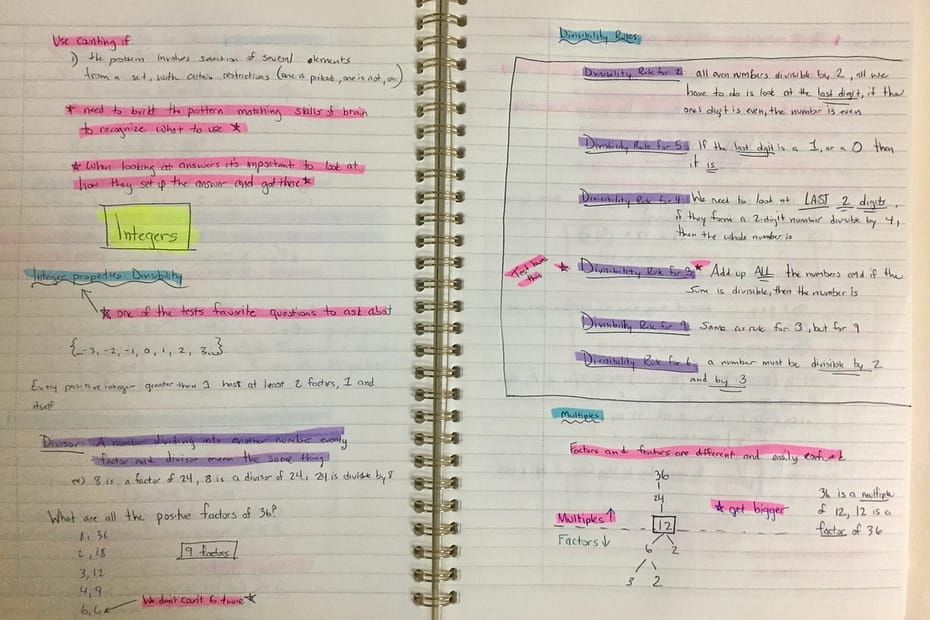 Use Counting if
1) the problem involves selection of several elements
from a set, with certain restrictions (one is picked, one is not, etc)
★ need to built the pattern matching skills of brain
to recognize what to use ★
★ When looking at answers it's important to look at
how they set up the answer and got there ★
Integers
Integer properties: Divisibility
★ one of the tests favorite questions to ask about
{...-3, -2, -1, 0, 1, 2, 3...}
Every positive integer greater than 1 has at least 2 factors, 1 and
itself
Divisor: A number dividing into another number evenly
factor and divisor mean the same thing
ex) 8 is a factor of 24, 8 is a divisor of 24, 24 is divisible by 8
What are all the positive factors of 36?
1, 36
2, 18
9 factors
3, 12
4, 9
6, 6
We don't count 6 twice ★
Divisibility Rules
Divisibility Rule for 2: all even numbers divisible by 2, all we
have to do is look at the last digit, if the
one's digit is even, the number is even
Divisibility Rule for 5: If the last digit is a 1, or a 0 then
it is
Divisibility Rule for 4: We need to look at LAST 2 digits,
if they form a 2-digit number divisible by 4,
then the whole number is
Test loves this
★ Divisibility Rule for 3: ★ Add up ALL the numbers and if the
sum is divisible, then the number is
Divisibility Rule for 9 Same as rule for 3, but for 9
Divisibility Rule for 6: a number must be divisible by 2
and by 3
Multiples
Factors and factors are different and easily
36
24
Multiples ↑
12
★ get bigger
Factors ↓
6 2
3 2
36 is a multiple
of 12, 12 is a
factor of 36